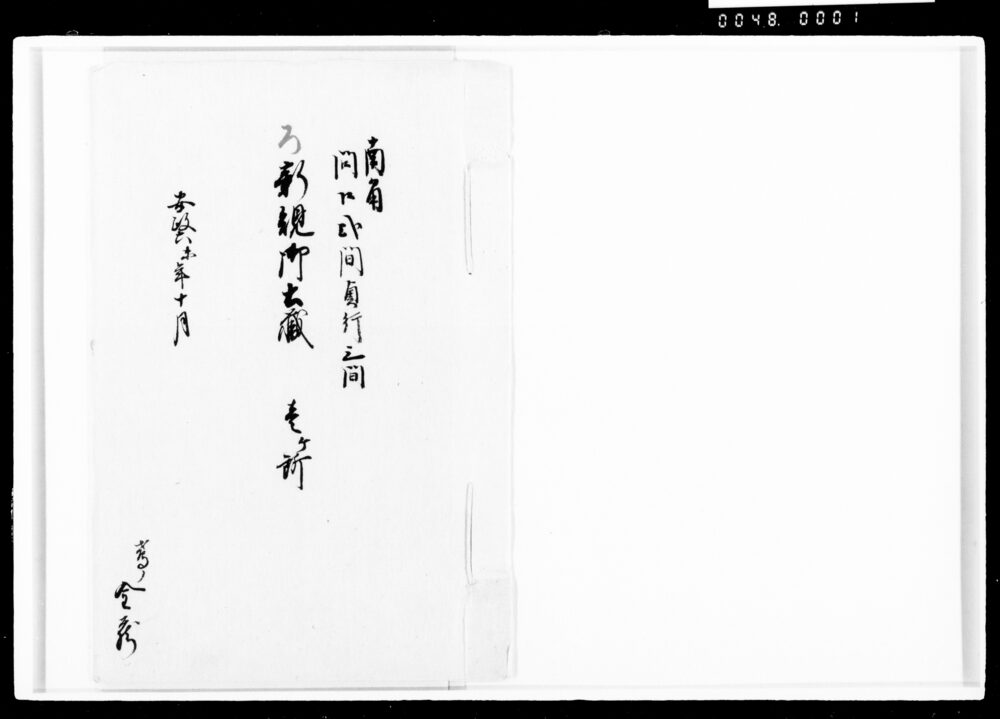 0048. 0001
南角
間口弐間奥行三間
ろ新規御土蔵　壱ヶ所
安政六未年十月
鳶ノ
金蔵